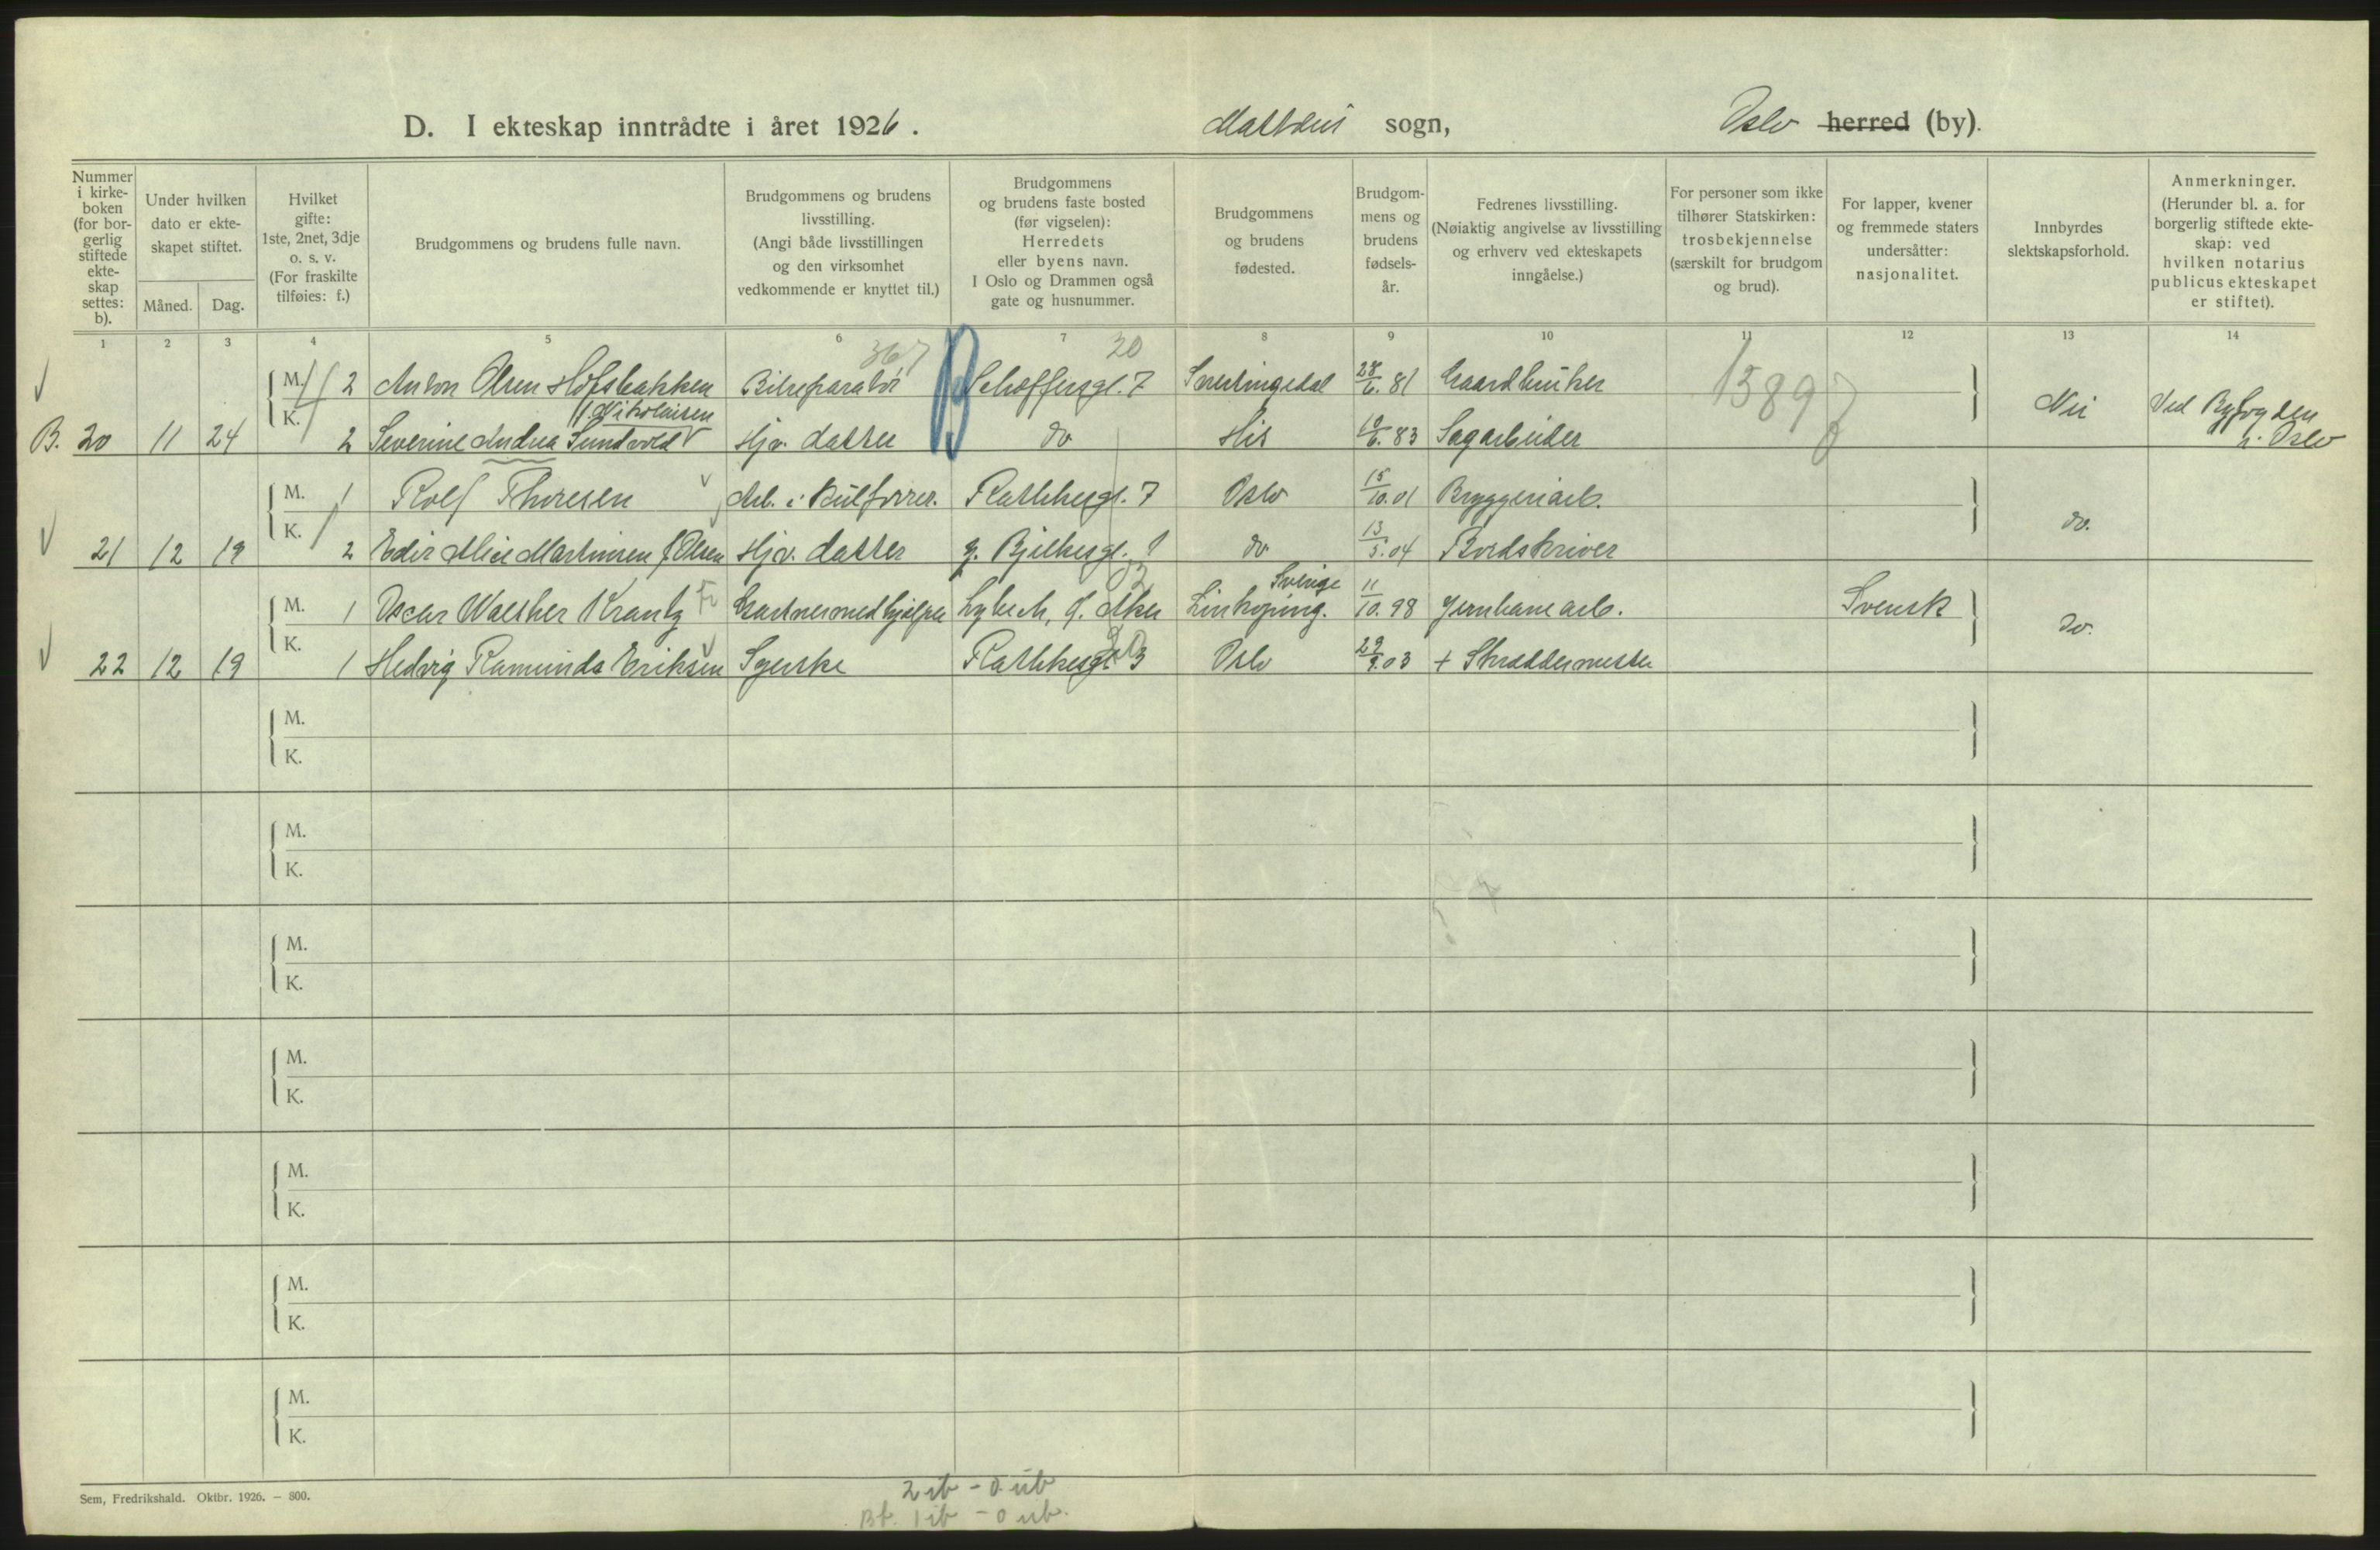 D. I ekteskap inntrådte i året 1926. Mattæus sogn, Oslo herred (by).
Nummer i kirke-boken (for bor-gerlig stiftede ekte-skap settes: b).
Under hvilken dato er ekte-skapet stiftet.
Måned. Dag.
Hvilket gifte: 1ste, 2net, 3dje o. s. v. (For fraskilte tilføies: f.)
Brudgommens og brudens fulle navn.
Brudgommens og brudens livsstilling. (Angi både livsstillingen og den virksomhet vedkommende er knyttet til.)
Brudgommens og brudens faste bosted (før vigselen): Herredets eller byens navn. I Oslo og Drammen også gate og husnummer.
Brudgommens og brudens fødested.
Brudgom-mens og brudens fødsels-år.
Fedrenes livsstilling. (Nøiaktig angivelse av livsstilling og erhverv ved ekteskapets inngåelse.)
For personer som ikke tilhører Statskirken: trosbekjennelse (særskilt for brudgom og brud).
For lapper, kvener og fremmede staters undersåtter: nasjonalitet.
Innbyrdes slektskapsforhold.
Anmerkninger. (Herunder bl. a. for borgerlig stiftede ekte-skap: ved hvilken notarius publicus ekteskapet er stiftet).
1 2 3 4 5 6 7 8 9 10 11 12 13 14
367 20
M. 2 Anton Olsen Hofsbakken Bilreparatør Schoffersgt. 7 Snertingdal 28/6. 81 Gaardbruker 1389
f. Nikolaisen
B. 20 11 24 K. 2 Severine Andrea Sundvold Hjv. datter do His 19/6. 83 Sagarbeider Nei Ved Byfogden i Oslo
M. 1 Rolf Thoresen Arb. i Kulforrer. Rathkesgt. 7 Oslo 15/10. 01 Bryggeriarb.
21 12 19 K. 2 Edis Alice Martinsen f. Olsen Hjv. datter g. Bjelkesgt. 1 do 13/5. 04 Bordskriver do.
Sverige
M. 1 Oscar Walther Krantz Gartnermedhjelper Lybeck, Ø. Aker Linkøping. 11/10. 98 Jernbanearb. Svensk
22 12 19 K. 1 Hedvig Ramunda Eriksen Syerske Rathkesgt. 3 Oslo 29/9. 03 + Skreddermester do.
M.
K.
M.
K.
M.
K.
M.
K.
M.
K.
M.
K.
M.
K.
Sem, Fredrikshald. Oktbr. 1926. — 800.
2 ib - 0 ub
Bf. 1 ib - 0 ub.